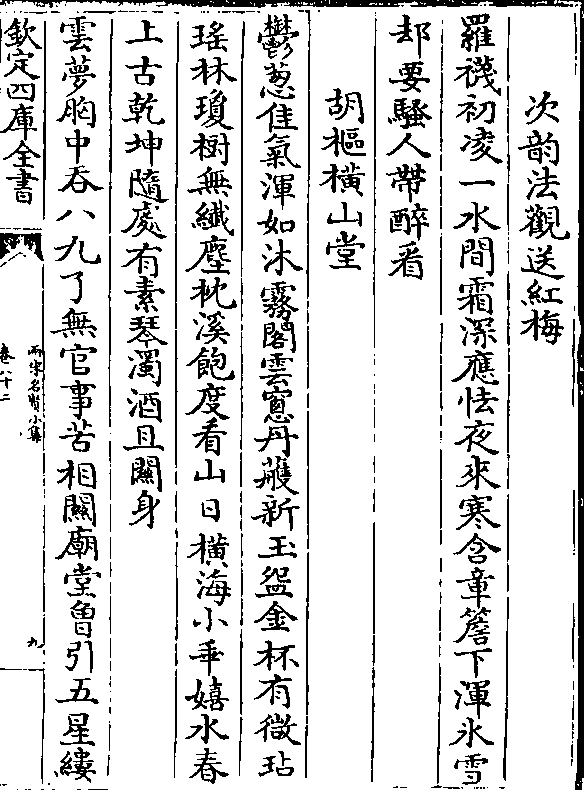 次韵法觀送紅梅
羅襪初凌一水間霜深應怯夜來寒含章簷下渾氷雪
却要騷人帶醉看
胡樞橫山堂
鬱葱佳氣渾如沐霧閣雲窻丹雘新玉盌金杯有微玷
瑤林瓊樹無纎塵枕溪飽度看山日橫海小垂嬉水春
上古乾坤隨處有素琴濁酒且關身
雲夢胸中吞八九了無官事苦相關廟堂曾引五星縷
欽定四庫全書
兩宋名賢小集
卷八十二
九